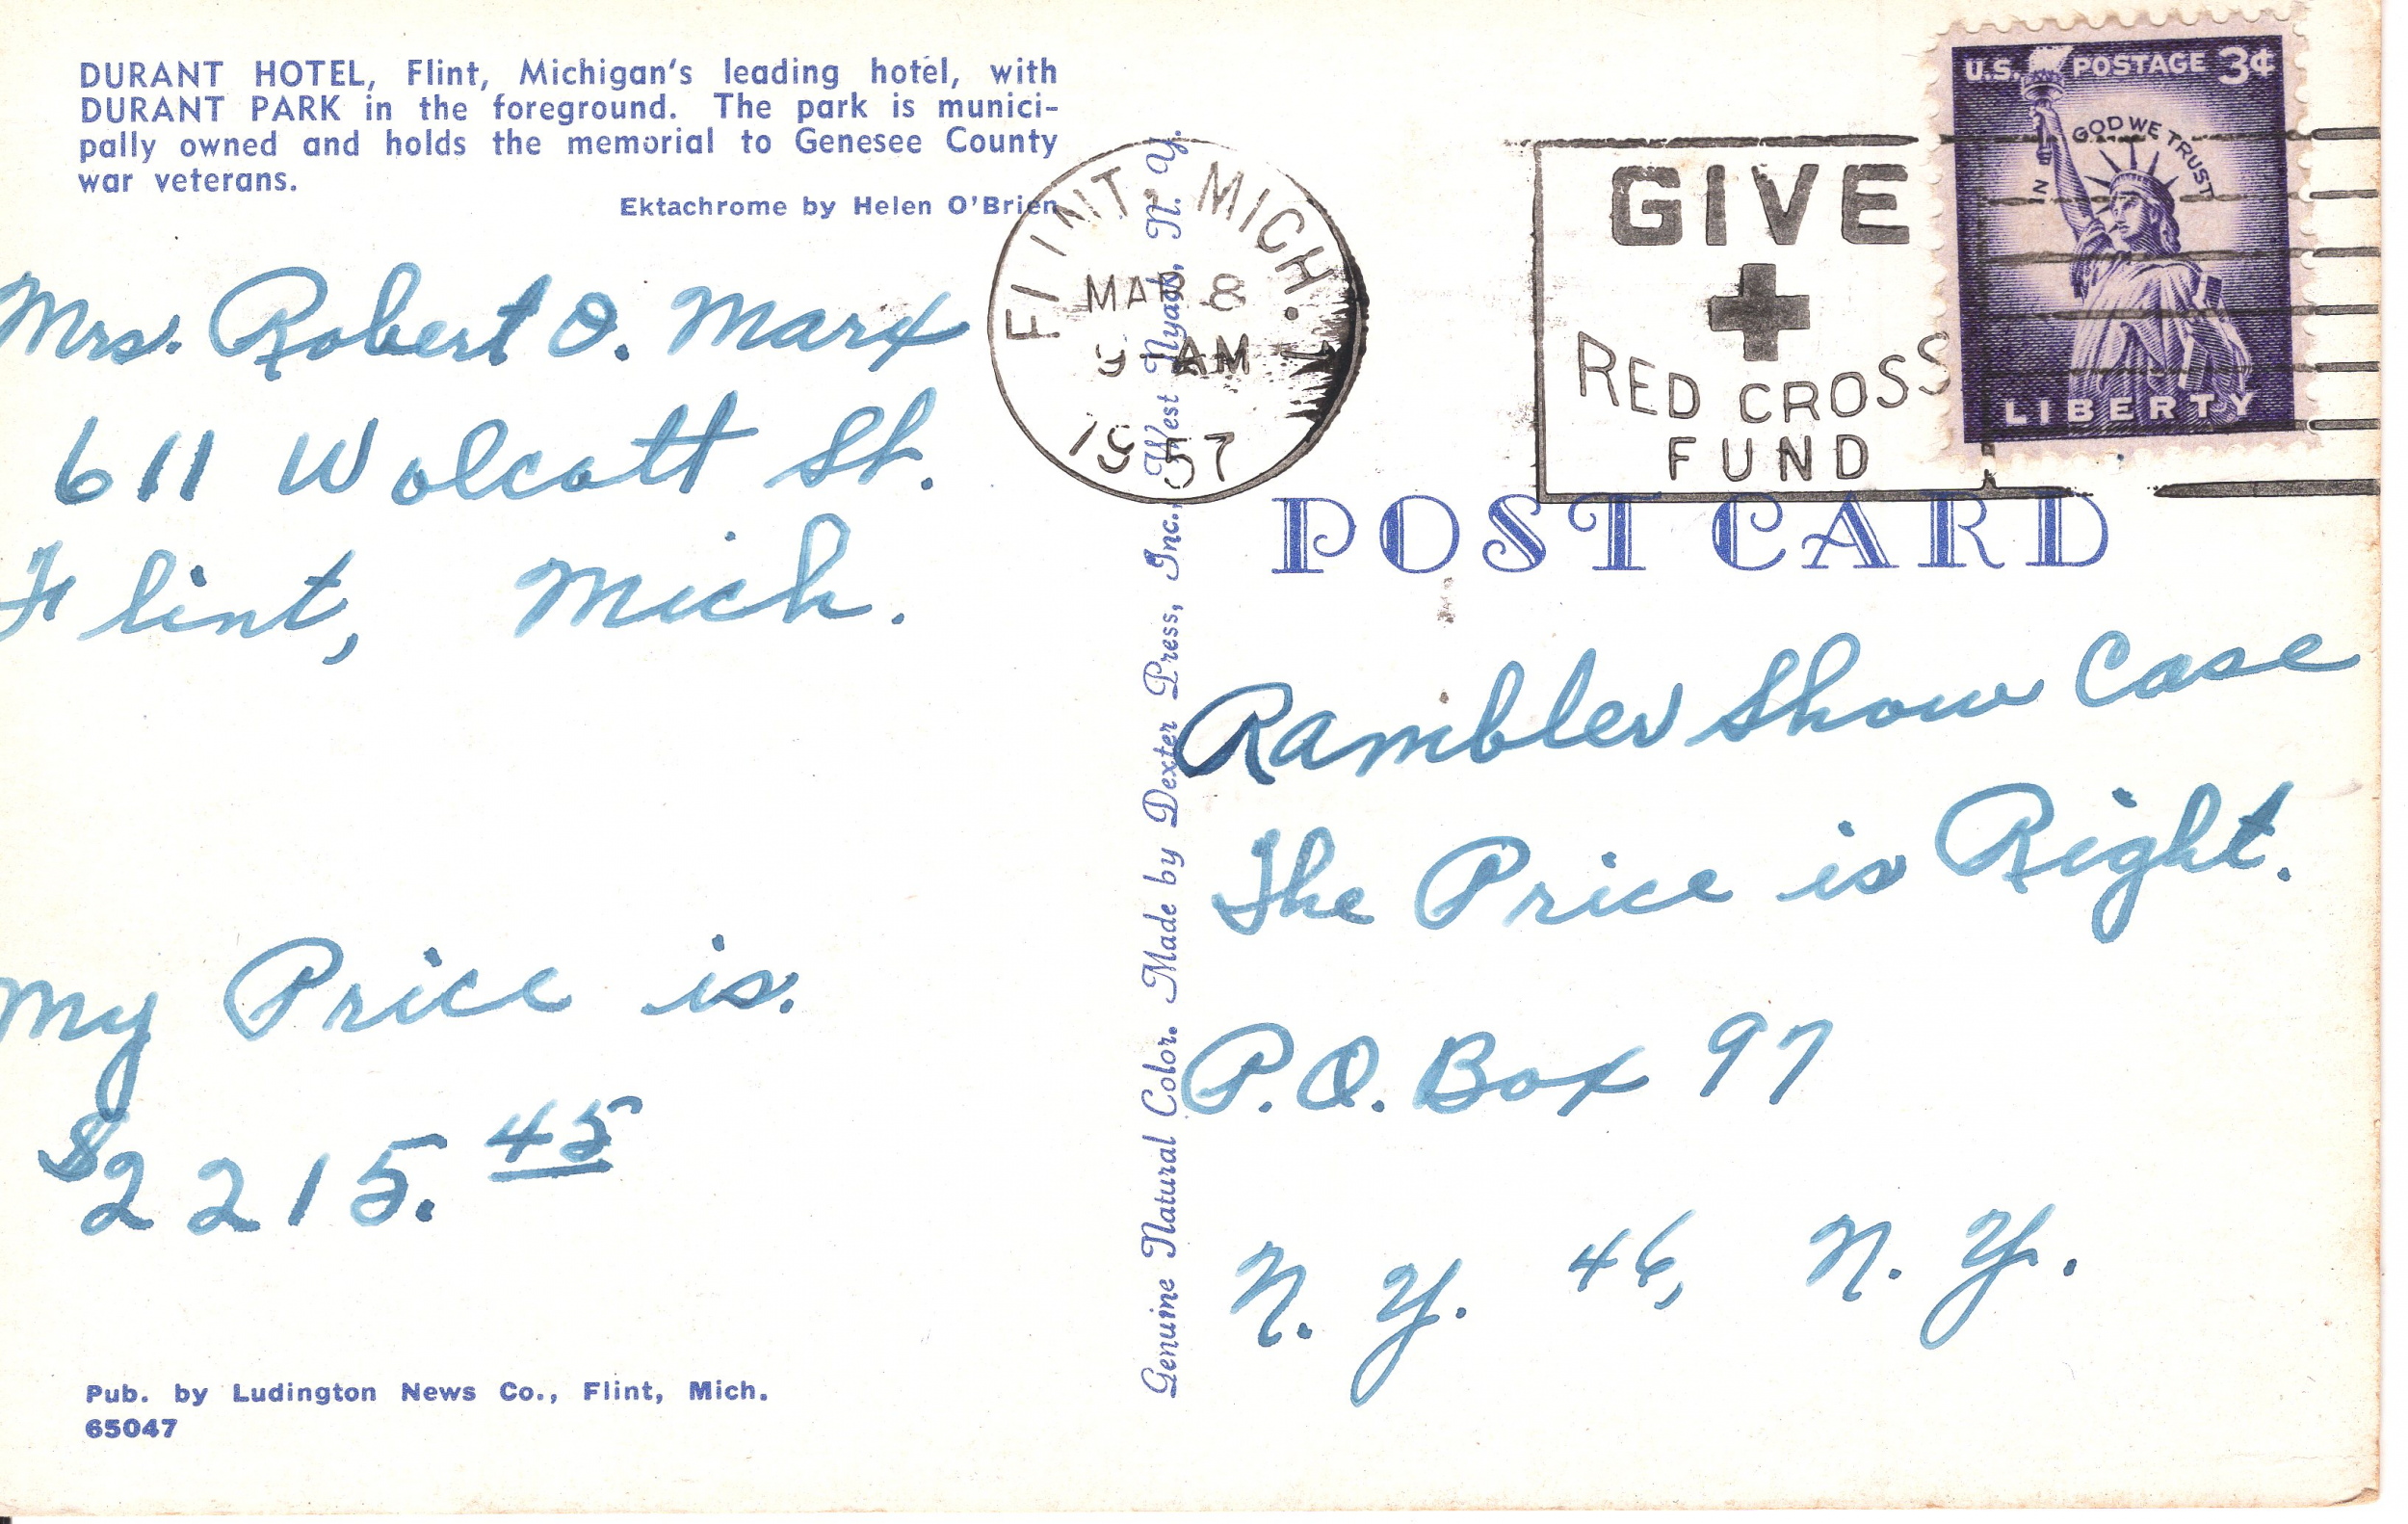 DURANT HOTEL, Flint, Michigan's leading hotel, with
DURANT PARK in the foreground. The park is munici-
pally owned and holds the memorial to Genesee County
war veterans.
Ektachrome by Helen O'Brien
Mrs. Robert O. Marx
611 Wolcott St.
Flint, Mich.
My Price is.
$2215.45
Pub. by Ludington News Co., Flint, Mich.
65047
Genuine Natural Color. Made by Dexter Press, Inc., West Nyack, N. Y.
FLINT, MICH. 1
MAR 8
9 AM
1957
GIVE
RED CROSS
FUND
U.S. POSTAGE 3¢
IN GOD WE TRUST
LIBERTY
POST CARD
Rambler Show Case
The Price is Right.
P.O. Box 97
N. Y. 46, N. Y.